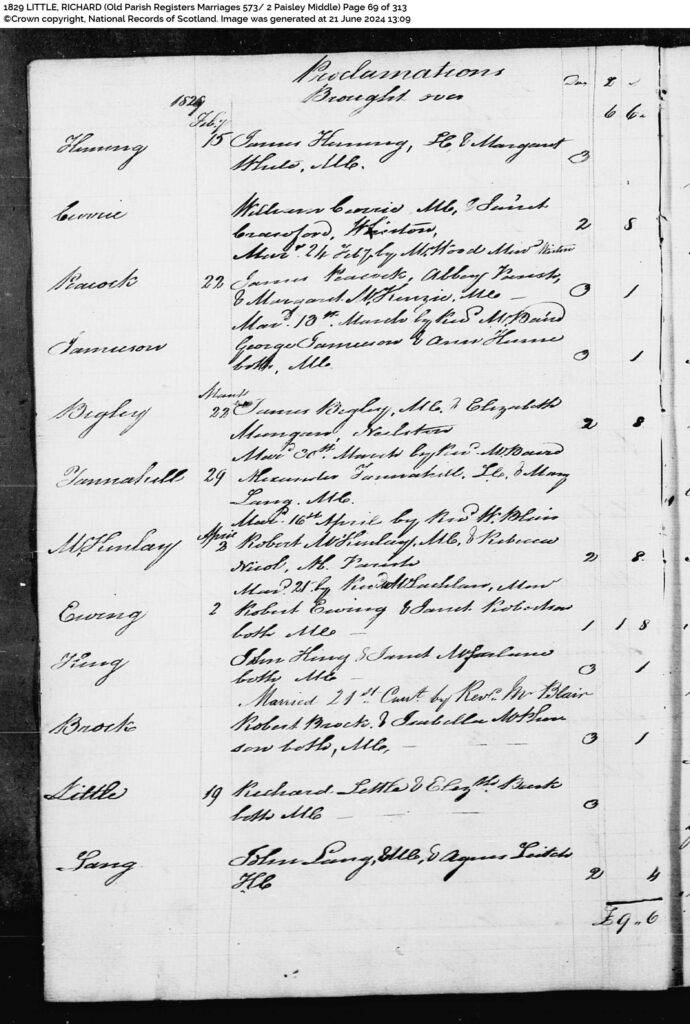 1829 LITTLE, RICHARD (Old Parish Registers Marriages 573/ 2 Paisley Middle) Page 69 of 313
©Crown copyright, National Records of Scotland. Image was generated at 21 June 2024 13:09
Proclamations
1829 Brought over 6 6
Feby
15 James Heming, & Margaret 3
White, MC.
Currie William Currie MC, & Janet
Crawford, 2 8
Mard. 24 Feby by Mr Wood Minr
Peacock 22 James Peacock, Abbey Parish,
& Margaret McKenzie, MC — 3 1
Mard. 13th. March by Revd. Mr Baird
Jamieson George Jamieson & Ann
both, MC. 3 1
March
Begley 22 James Begley, MC. & Elizabeth
Mungan, Neilston 2 8
Mard. 30th. March by Revd. Mr Baird
Tannahill 29 Alexander Tannahill, & Mary
Lang. MC.
Mard. 16th April by Revd. Mr Blair
McKinlay April 2 Robert McKinlay, MC, & Rebecca
Nicol, Parish 2 8
Mard. 21 by Revd Mr Lachlan,
Ewing 2 Robert Ewing & Janet Robertson
both MC — 1 1 8
King John King & Janet McFarlane
both MC — 3 1
Married 21st. Curt. by Revd. Mr Blair
Brock Robert Brock & Isabella
son both, MC, — 3 1
Little 19 Richard Little & Elizth.
both MC — 3
Lang John Lang, MC, & Agnes Leitch
2 4
£9 .. 6